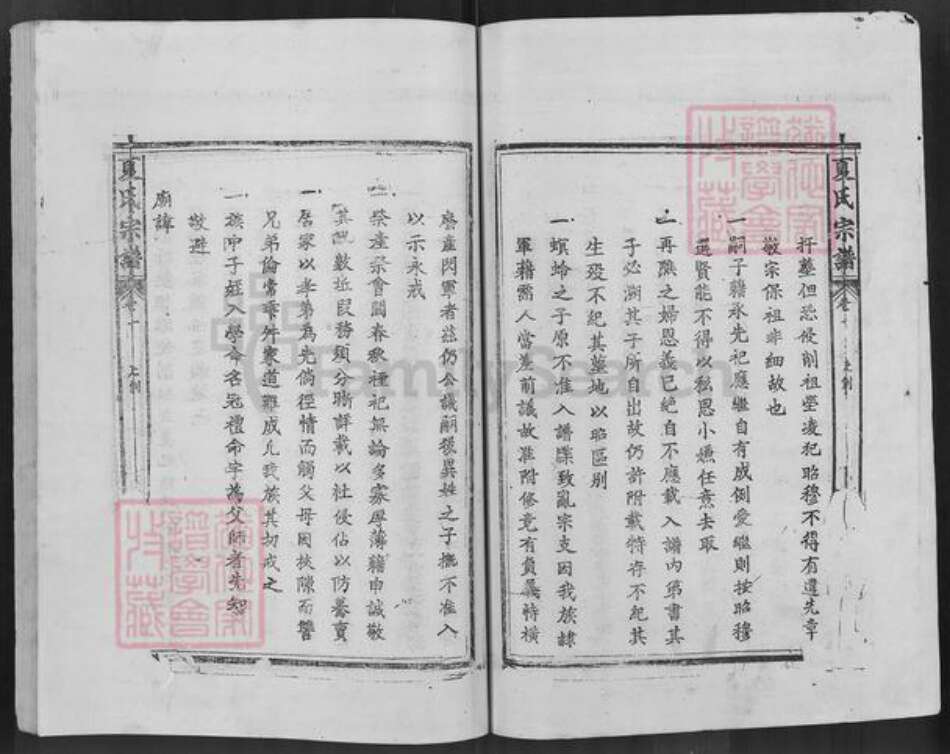 夏氏宗譜 卷 上創
扦塟但恐侵削祖塋凌犯昭穆不得有違先章
敬宗保祖非細故也
一嗣子藉永先祀應繼自有成例愛繼則按昭穆
選賢能不得以私恩小嫌任意去取
一再醮之婦恩義已絕自不應載入譜內第書其
子必溯其子所自出故仍許附載特存不紀其
生歿不紀其墓地以昭區別
一螟蛉之子原不准入譜牒致亂宗支因我族隸
軍籍需人當差前議故准附修竟有負暴恃橫
廢產閃軍者茲仍公議嗣後異姓之子概不准入
以示永戒
一祭產宗會關春秋 祀無論多寡厚薄藉申誠敬
其 數坵段務須分晰詳載以杜侵佔以防養賣
一居家以孝弟為先倘徑情而觸父母因挾隙而讐
兄弟倫常乖舛家道難成凡我族其切戒之
一族中子姪入學命名冠禮命字為父師者先 
敬避
廟諱
夏氏宗譜 卷 上創
FamilySearch
藏